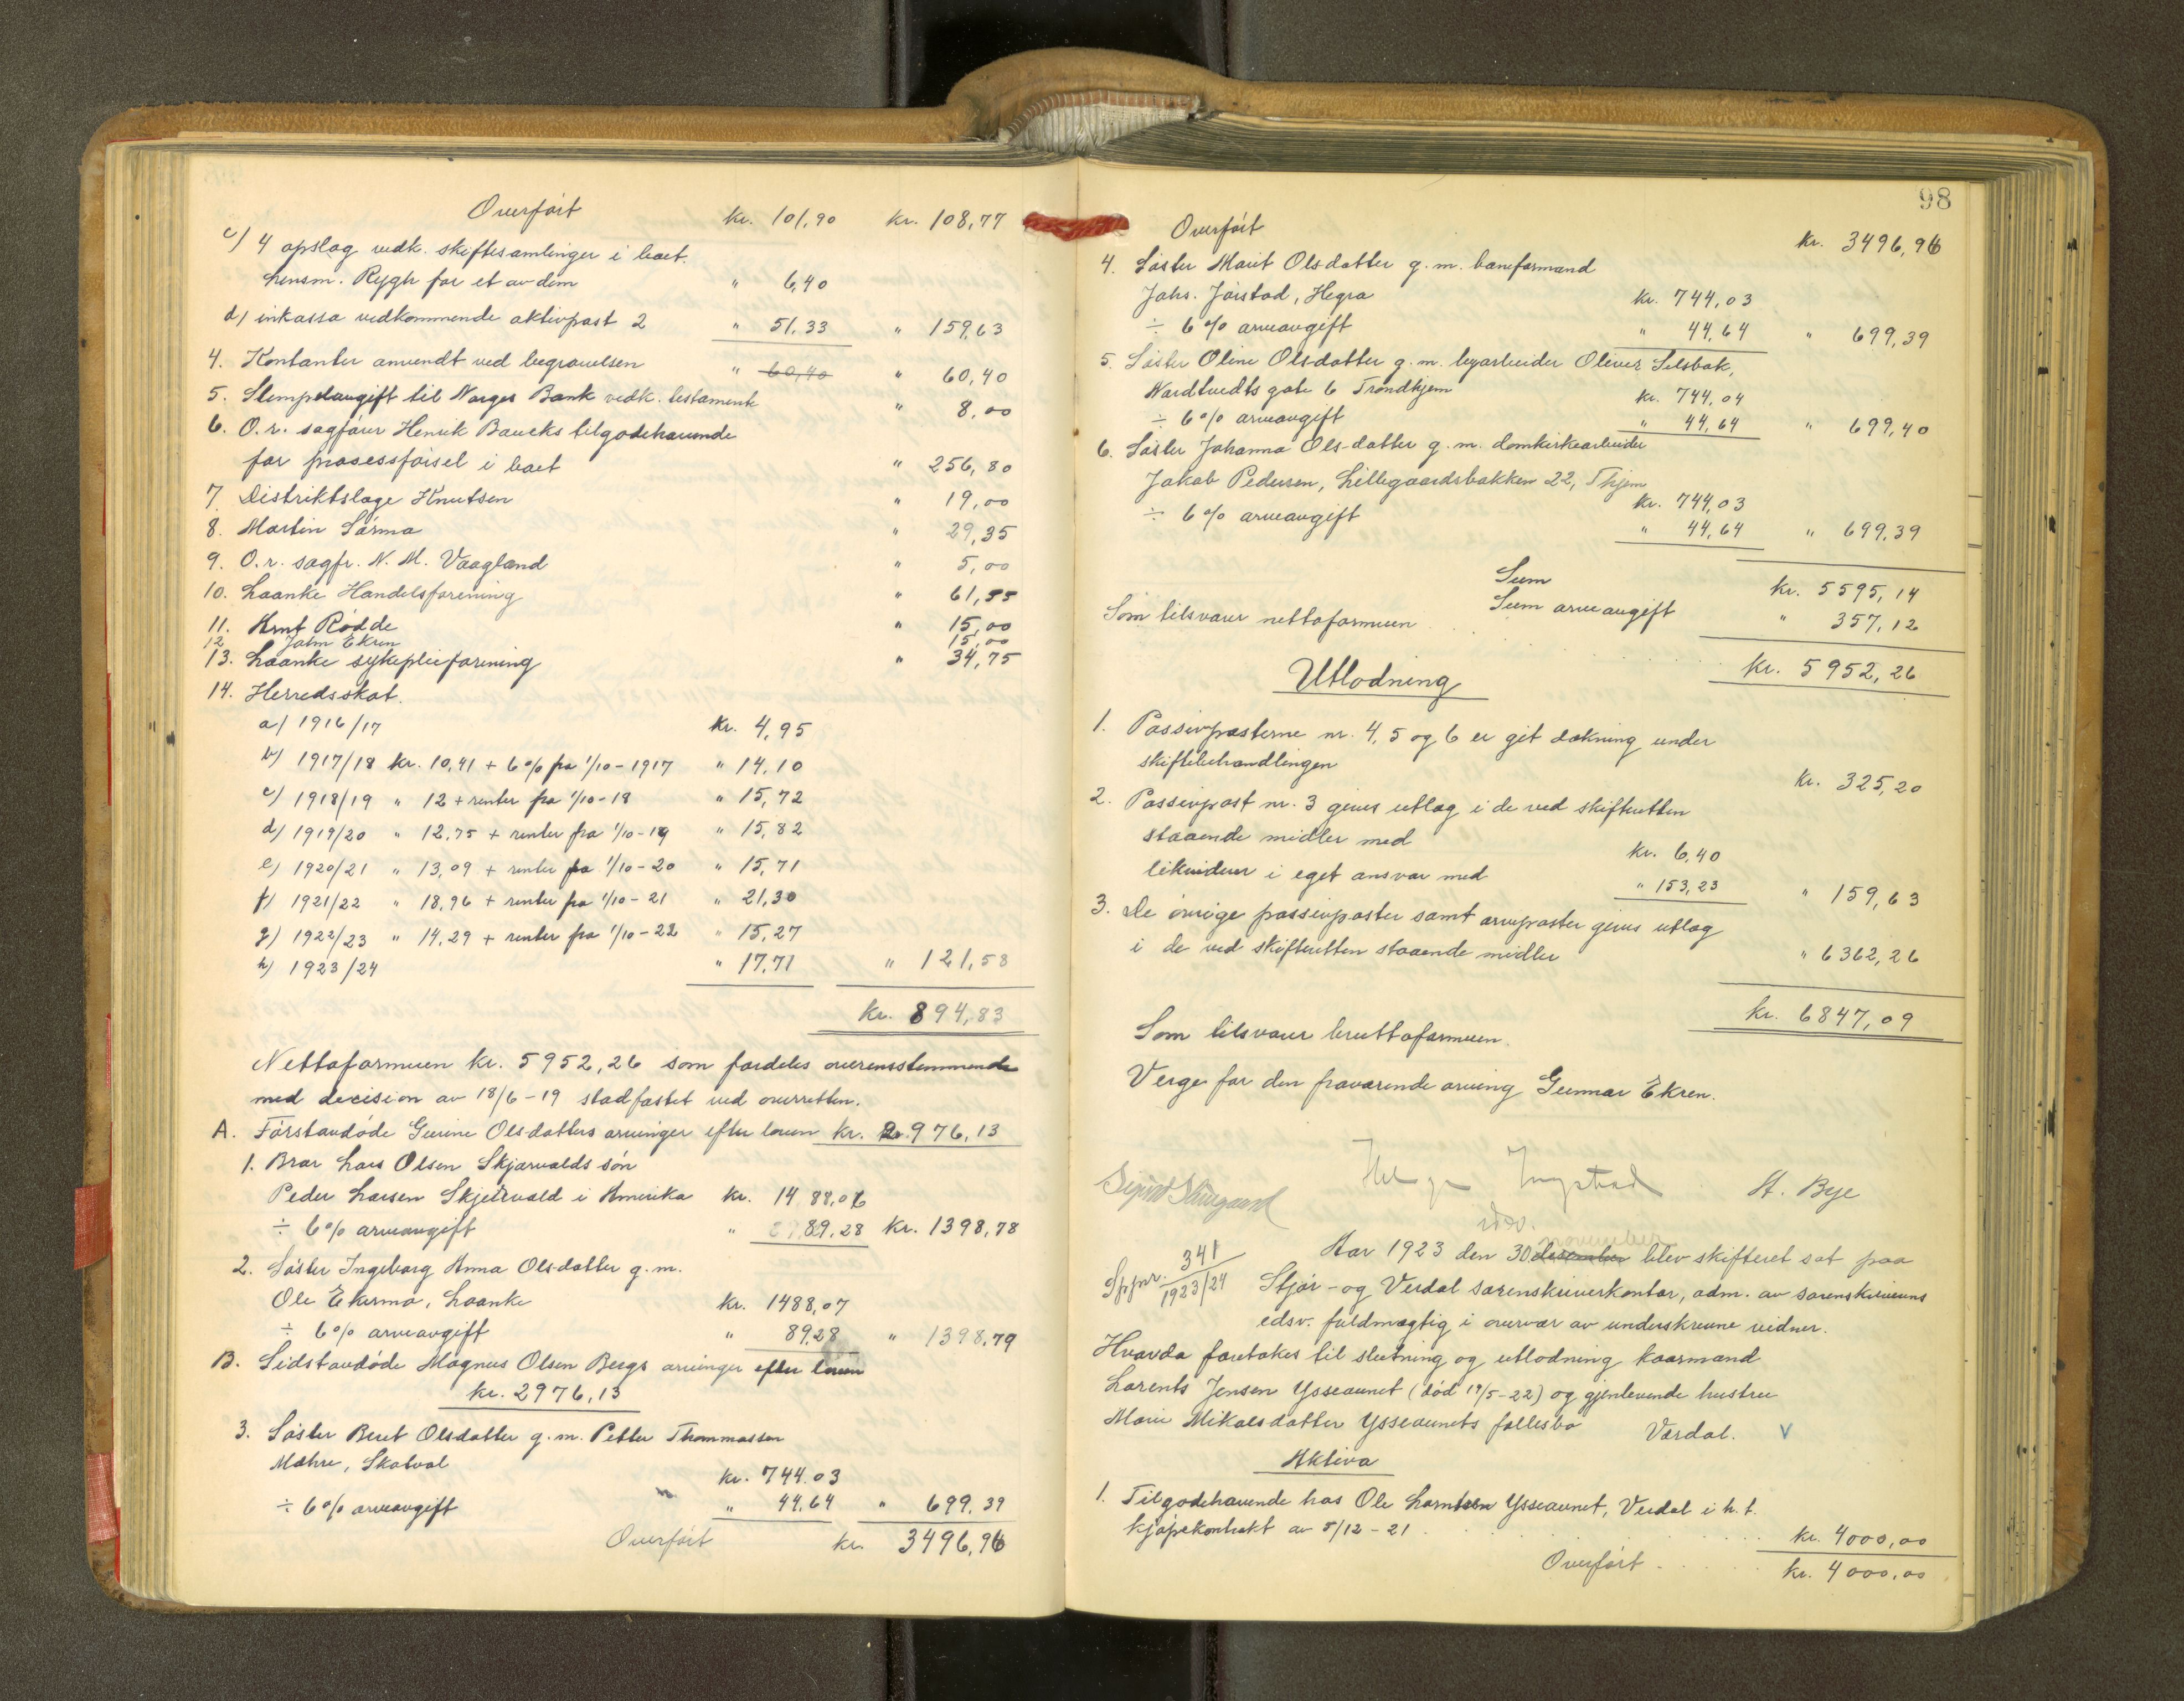 Overført kr. 101,90 kr. 108,77
c) 4 opslag vedk. skiftesamlinger i boet.
Lensm. Rygh for et av dem " 6,40
d) inkasso vedkommende aktivpost 2 " 51,33 " 159,63
4. Kontanter anvendt ved begravelsen " 60,40 " 60,40
5. Stempelavgift til Norges Bank vedk. testamente " 8,00
6. O.r. sagfører Henrik Baucks tilgodehavende
for prosessførsel i boet " 256,80
7. Distriktslæge Knutsen " 19,00
8. Martin Sørmo " 29,35
9. O.r. sagfr. N. M. Vaagland " 5,00
10. Laanke Handelsforening " 61,55
11. Arnt Rødde " 15,00
12 John Ekren 15,00
13. Laanke sykepleieforening " 34,75
14. Herredsskat.
a) 1916/17 kr. 4,95
b) 1917/18 kr. 10,41 + 6% fra 1/10-1917 " 14,10
c) 1918/19 " 12 + renter fra 1/10-18 " 15,72
d) 1919/20 " 12,75 + renter fra 1/10-19 " 15,82
e) 1920/21 " 13,09 + renter fra 1/10-20 " 15,71
f) 1921/22 " 18,96 + renter fra 1/10-21 " 21,30
g) 1922/23 " 14,29 + renter fra 1/10-22 " 15,27
h) 1923/24 " 17,71 " 121,58
kr. 894,83
Nettoformuen kr. 5952,26 som fordeles overensstemmende
med decision av 18/6-19 stadfæstet ved overretten.
A. Førstavdøde Gurine Olsdatters arvinger efter loven kr. 2.976,13
1. Bror Lars Olsen Skjærvolds søn
Peder Larsen Skjelvold i Amerika kr. 1488,06
÷ 6% arveavgift " 89,28 kr. 1398,78
2. Søster Ingeborg Anna Olsdatter g.m.
Ole Ekermo, Laanke kr. 1488,07
÷ 6% arveavgift " 89,28 " 1398,79
B. Sidstavdøde Magnus Olsen Bergs arvinger efter loven
kr. 2976,13
3. Søster Beret Olsdatter g.m. Petter Thommassen
Mæhre, Skatval kr. 744.03
÷ 6% arveavgift " 44,64 " 699,39
Overført kr. 3496,96
98
Overført kr. 3496,96
4. Søster Marit Olsdatter g.m. baneformand
Johs. Jørstad, Hegra kr. 744,03
÷ 6% arveavgift " 44,64 " 699,39
5. Søster Oline Olsdatter g.m. byarbeider Oliver Selsbak,
Nordtvedts gate 6 Trondhjem kr. 744,04
÷ 6% arveavgift " 44,64 " 699,40
6. Søster Johanna Ols-datter g.m. domkirkearbeider
Jakob Pedersen, Lillegaardsbakken 22, Thjem kr. 744,03
÷ 6% arveavgift " 44,64 " 699,39
Sum kr. 5595,14
Sum arveavgift " 357,12
Som tilsvarer nettoformuen kr. 5952,26
Utlodning
1. Passivposterne nr. 4, 5 og 6 er git dækning under
skiftebehandlingen kr. 325,20
2. Passivpost nr. 3 gives utlæg i de ved skifteretten
staaende midler med kr. 6,40
likviderer i eget ansvar med " 153,23 " 159,63
3. De øvrige passivposter samt arveposter gives utlæg
i de ved skifteretten staaende midler " 6362,26
kr. 6847,09
Som tilsvarer bruttoformuen.
Verge for den fraværende arving Gunnar Ekren.
Helge Ingstad A. Bye
edsv.
november
Aar 1923 den 30 desember blev skifteret sat paa
Spjnr. 341 1923/24 Stjør- og Verdal sorenskriverkontor, adm. av sorenskriverens
edsv. fuldmægtig i overvær av underskrevne vidner.
Hvorda foretokes til slutning og utlodning kaarmand
Lorents Jensen Ysseaunet (død 19/5-22) og gjenlevende hustru
Marie Mikalsdatter Ysseaunets fællesbo Værdal. V
Aktiva
1. Tilgodehavende hos Ole Lorntsen Ysseaunet, Verdal i h.t.
kjøpekontrakt av 5/12-21 kr. 4000,00
Overført kr. 4000,00